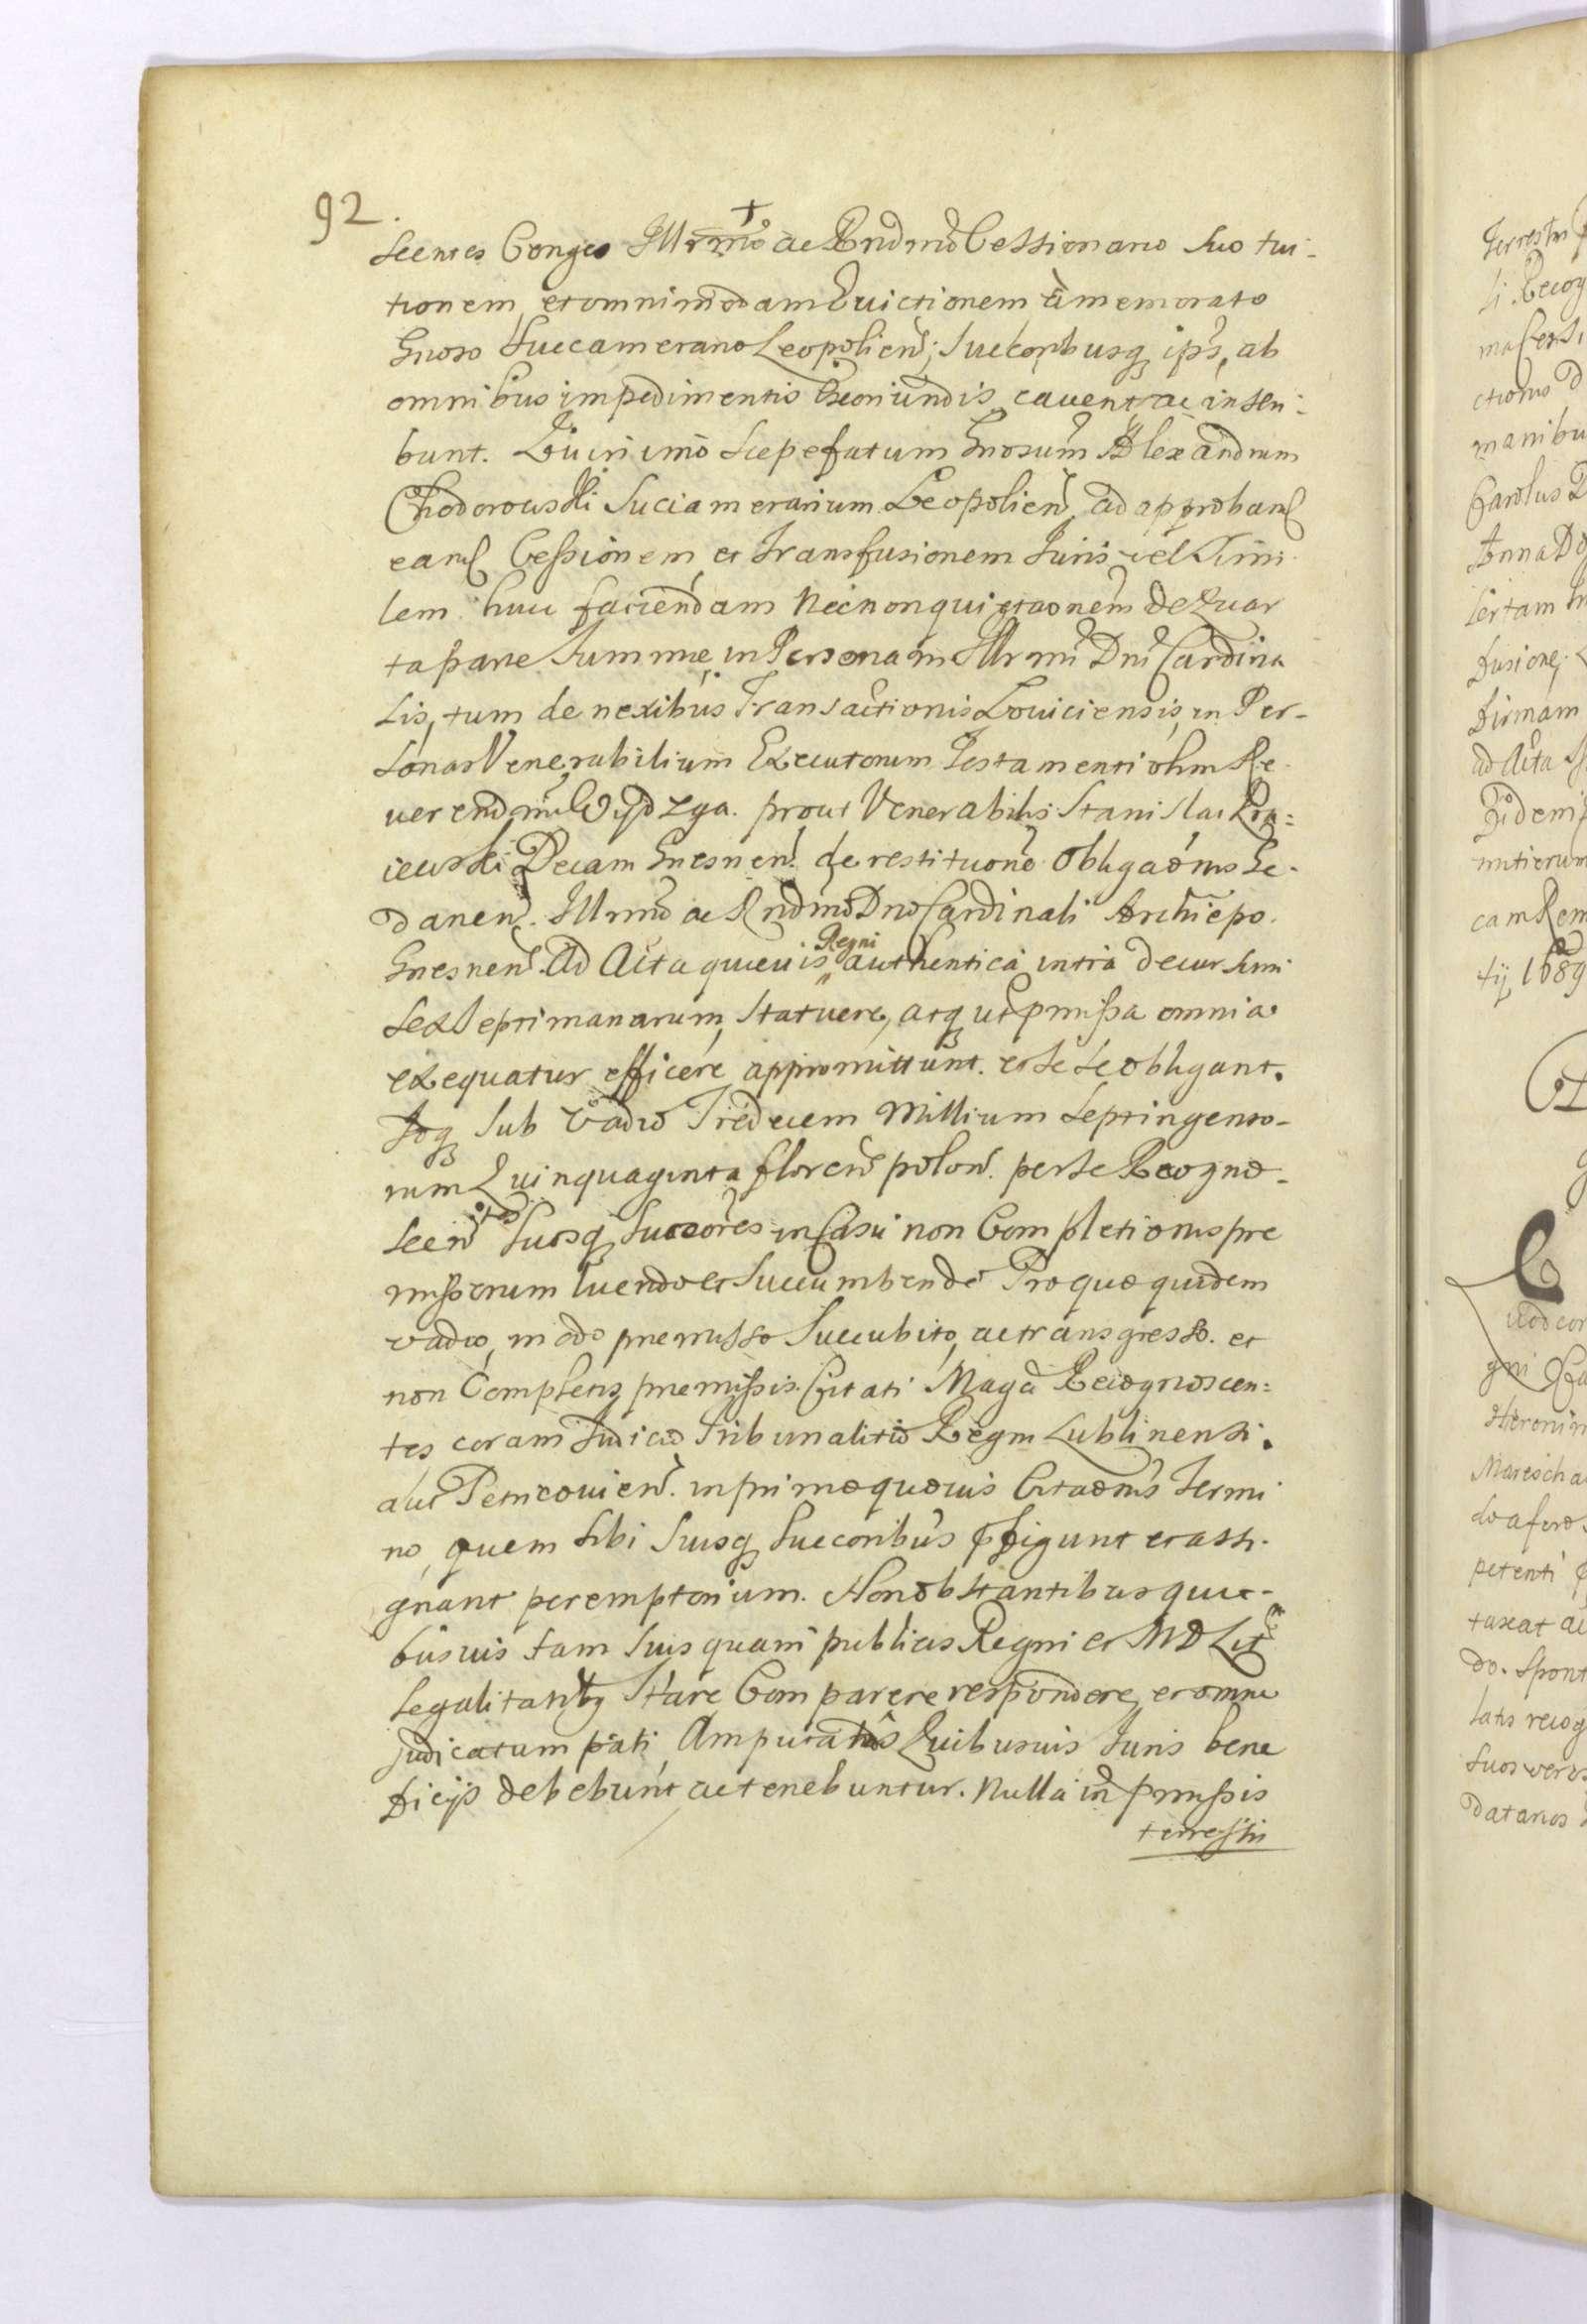 92.
scentes Conges Illrmo ac Rndmo Cessionario suo tui-
tionem et omnimodam Evictionem à memorato
Gnoso Succamerario Leopolien, Succoribusq ips, ab
omnibus impedimentis Exoriundis cavent, ac inscri-
bunt. Quin imo saepefatum Gnosum Alexandrum
Chodorowski Succiamerarium Leopolien, ad approband
eand Cessionem et Transfusionem Juris vel simi
lem huic faciendam Necnon quietaonem de Quar
ta parte Summae in Personam Illrmi Dni Cardina
lis, tum de nexibus Transactionis Loviciensis, in Per-
sonas Venerabilium Executorum Testamenti olim Re
verendmi Wydzga. prout Venerabilis Stanislai
iewski Decani Gnesnen. de restituone Obligaonis Ge-
danen. Illrmo ac Rndmo Dno Cardinali Archiepo.
Gnesnen. Ad Acta quaevis Regni authentica intra decursum
sex Septimanarum, statuere, atq ut pmissa omnia
exequatur efficere appromittunt. et se se obligant.
Idq sub vadio Tredecem Millium Septingento-
rum Quinquaginta floren polon. per se Recogno-
scen suosq succores in Casu non Completionis pre
missorum luendo et succumbendo Pro quo quidem
vadio, modo premisso succubito, ac transgresso. et
non Completis premissis. Citati Magci Recognoscen=
tes coram Judicio Tribunalitio Regni Lublinensi.
aut Petricovien. in primo quovis Citaonis Termi
no, quem sibi suisq succoribus pfigunt et assi-
gnant peremptorium. Non obstantibus qui-
busvis tam suis quam publicis Regni et M D Lit
legalitatibq Stare Comparere respondere, et omne
judicatum pati Amputatis Quibusvis Juris bene
ficijs debebunt ac tenebuntur. Nulla in pmissis
terrestri
Terrestri
li. Recog
ctionis D
manibu
Carolus
Anna
sertam
fusione
firmam
ad Acta
Fidem
cam Rem
tij 1689
C
Hieronim
Marescha
petenti
taxat ac
do. Spont
latis recog
suos veros
datarios